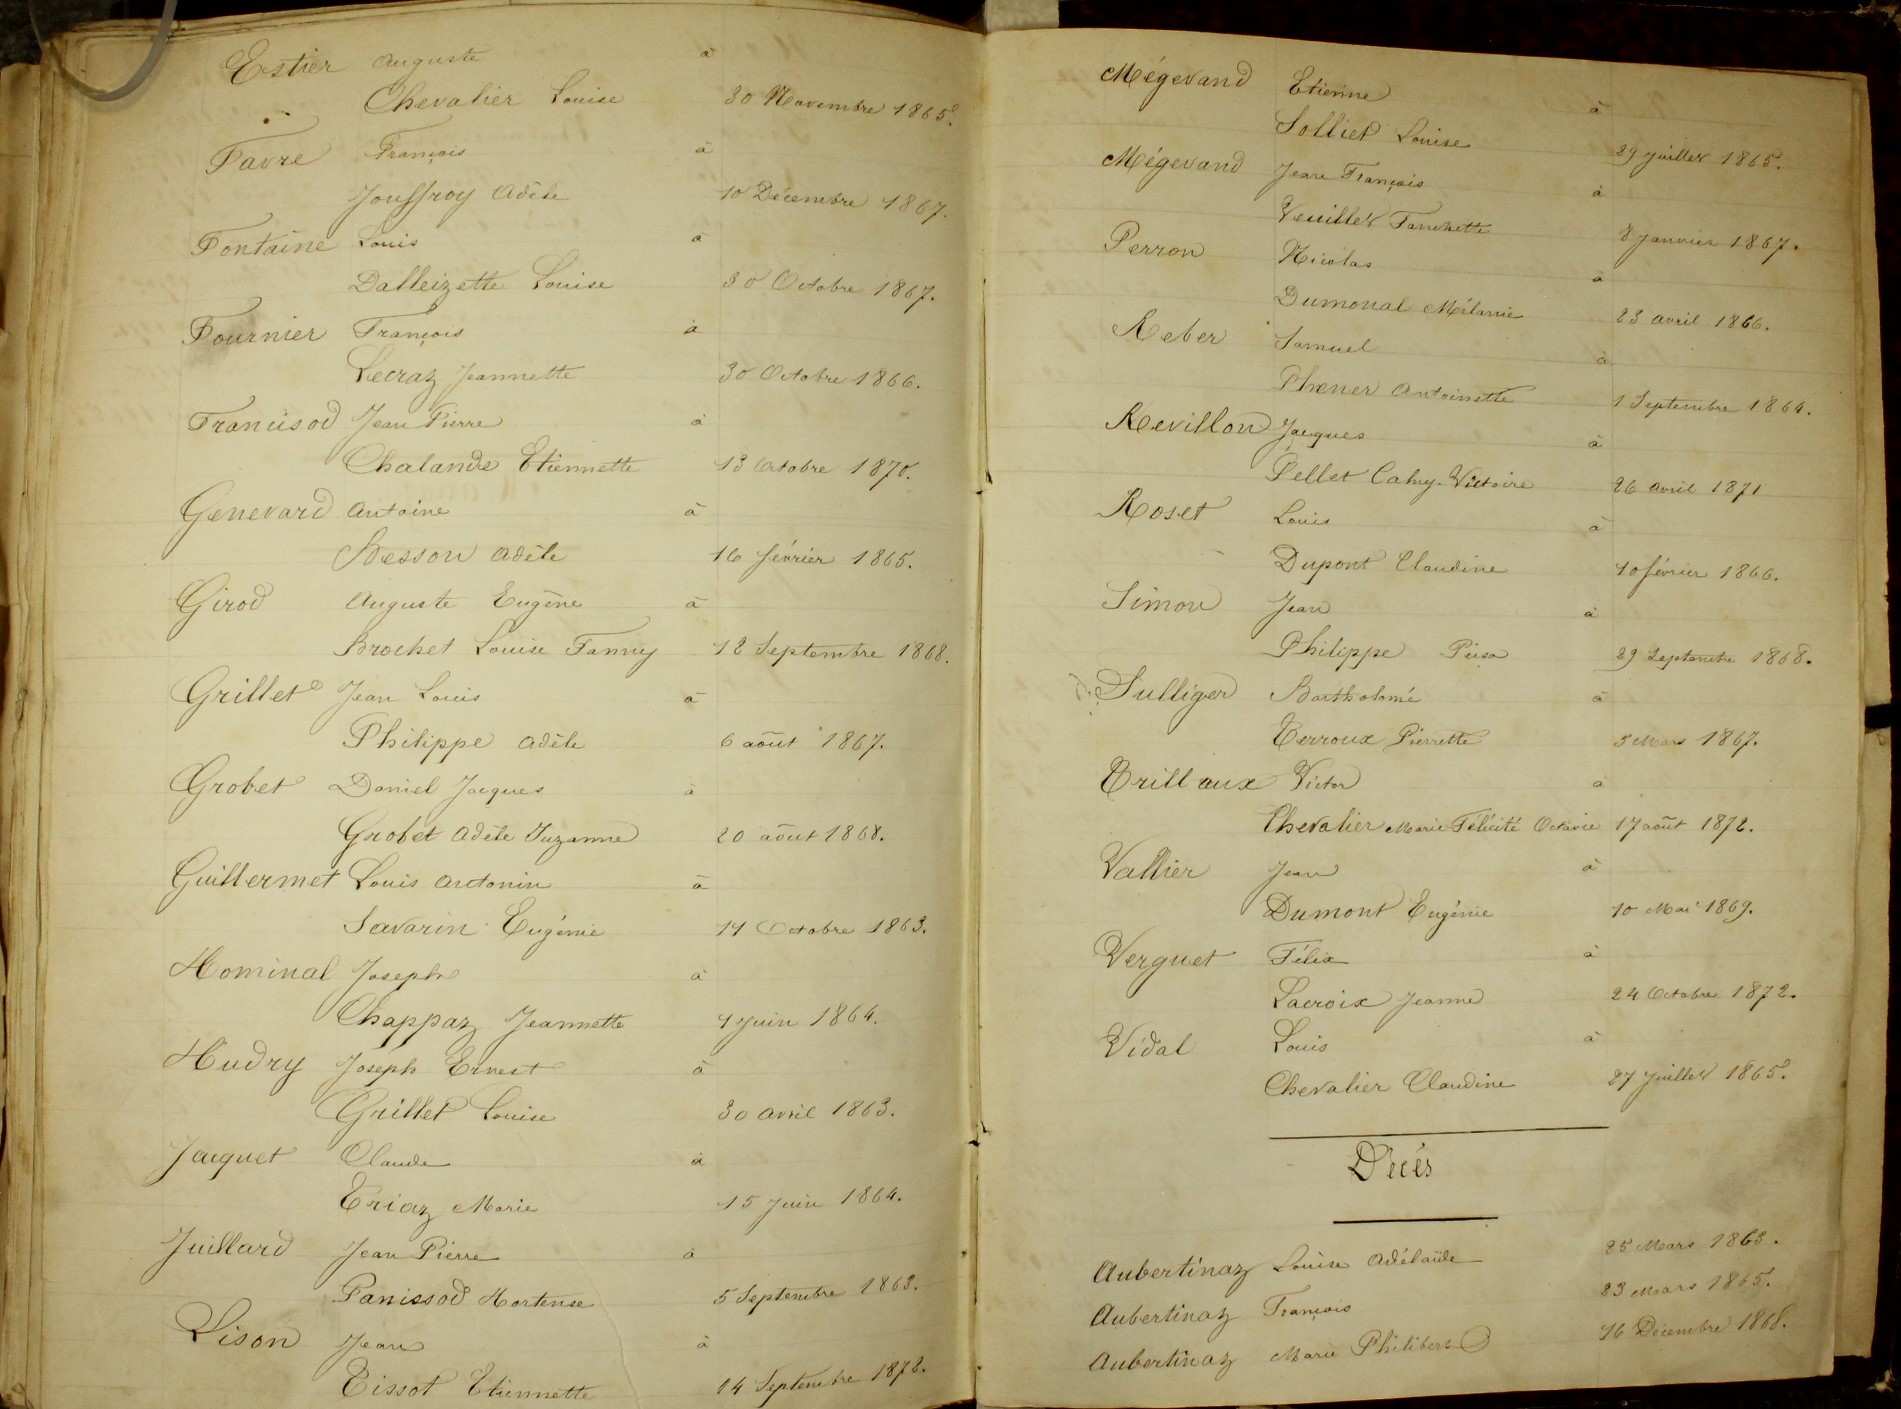 Estier Auguste à
Chevalier Louise 30 Novembre 1865.
Favre François à
Jouffroy Adèle 10 Décembre 1867.
Fontaine Louis à
Dalleizette Louise 30 Octobre 1867.
Fournier François à
Lecraz Jeannette 30 Octobre 1866.
Francisod Jean Pierre à
Chalande Etiennette 13 Octobre 1870.
Genevard Antoine à
Besson Adèle 16 février 1865.
Girod Auguste Eugène à
Brochet Louise Fanny 12 Septembre 1868.
Grillet Jean Louis à
Philippe Adèle 6 août 1867.
Grobet Daniel Jacques à
Grobet Adèle Suzanne 20 août 1868.
Guillermet Louis Antonin à
Savarin Eugénie 14 Octobre 1863.
Hominal Joseph à
Chappaz Jeannette 1 Juin 1864.
Hudry Joseph Ernest à
Grillet Louise 30 avril 1863.
Jacquet Claude à
Triaz Marie 15 Juin 1864.
Juillard Jean Pierre à
Panissod Hortense 5 Septembre 1863.
Lison Jean à
Tissot Etiennette 14 Septembre 1872.
Mégevand Etienne à
Solliet Louise 29 Juillet 1865.
Mégevand Jean François à
Veuillet Fanchette 8 Janvier 1867.
Perron Nicolas à
Dumonal Mélanie 23 avril 1866.
Reber Samuel à
Antoinette 1 Septembre 1864.
Revillon Jacques à
Pellet Victoire 26 avril 1871
Roset Louis à
Dupont Claudine 10 février 1866.
Simon Jean à
Philippe 29 Septembre 1868.
Sulliger Bartholomé à
Terroux Pierrette 5 Mars 1867.
Trillaux Victor à
Chevalier Marie Félicité Octavie 17 août 1872.
Vallier Jean à
Dumont Eugénie 10 Mai 1869.
Verguet Félix à
Lacroix Jeanne 24 Octobre 1872.
Vidal Louis à
Chevalier Claudine 27 Juillet 1865.
Décès
Aubertinaz Louise Adélaïde 25 Mars 1863.
Aubertinaz François 23 Mars 1865.
Aubertinaz Marie Philiberte 16 Décembre 1868.